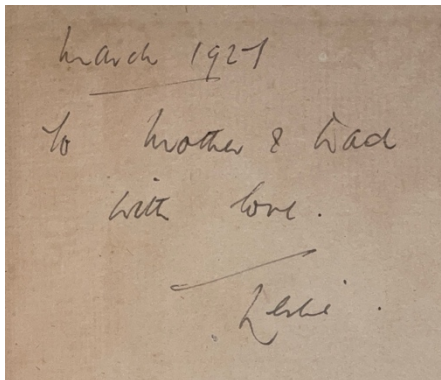 March 1927
To Mother & Dad
with love.
Leslie.